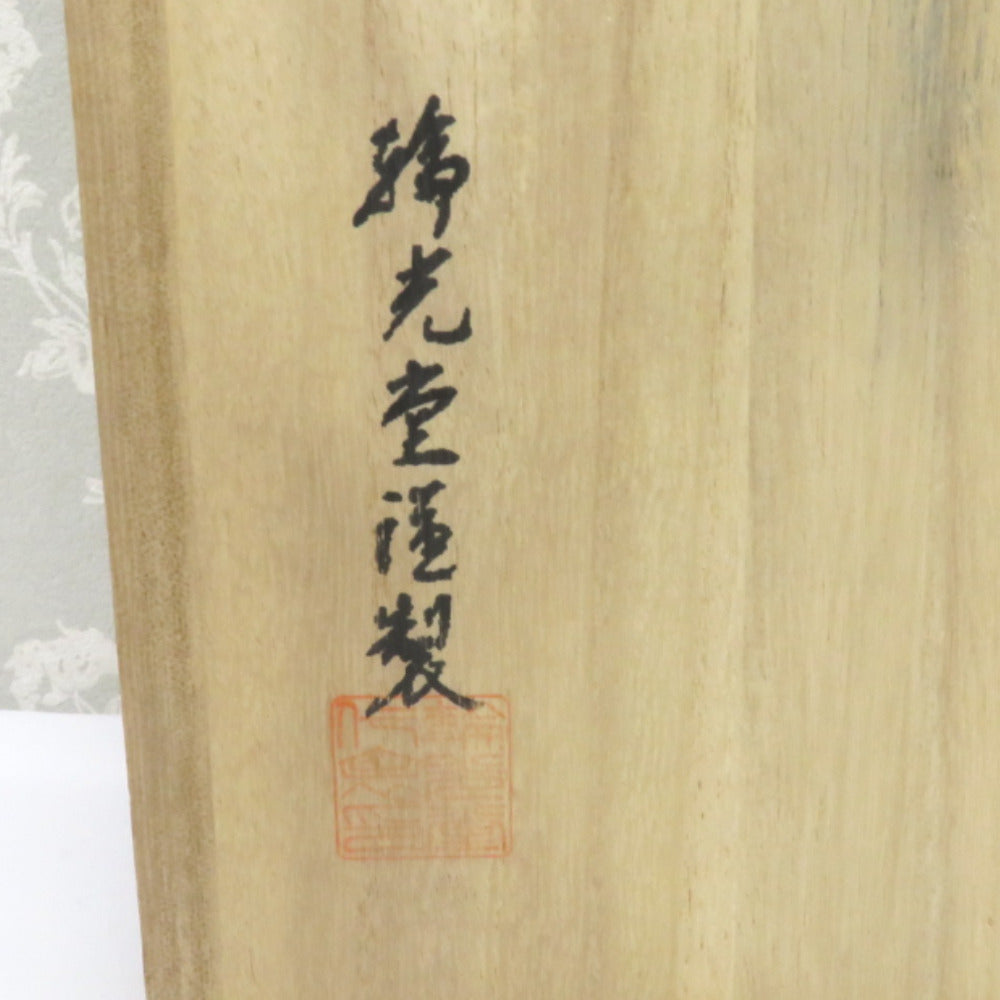 輪光堂謹製